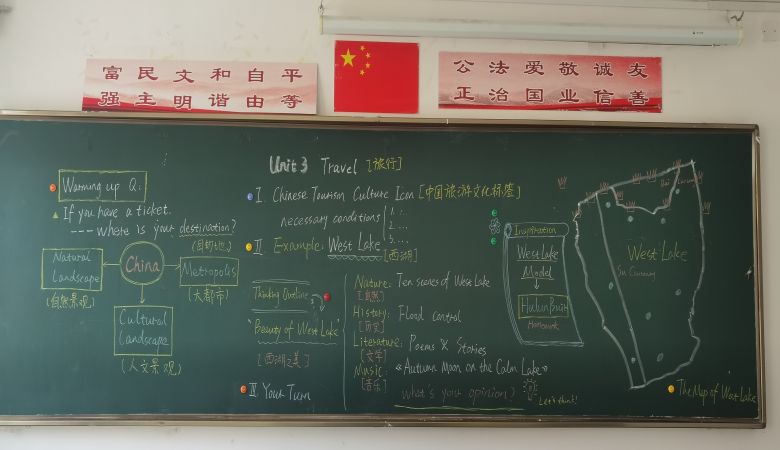 富民文和自平
强主明谐由等
公法爱敬诚友
正治国业信善
Unit 3 Travel [旅行]
Warming up Q:
If you have a ticket.
---- Where is your destination?
(目的地)
Natural
Landscape
(自然景观)
China
Metropolis
(大都市)
Cultural
Landscape
(人文景观)
I. Chinese Tourism Culture Icon [中国旅游文化标签]
necessary conditions
1. ...
2. ...
3. ...
II Example: West Lake
[西湖]
Thinking Outline
"Beauty of West Lake"
[西湖之美]
Nature: Ten scenes of West Lake
[自然]
History: Flood control
[历史]
Literature: Poems & Stories
[文学]
Music: 《Autumn Moon on the Calm Lake》
[音乐]
What's your opinion?
Let's think!
Your Turn
Inspiration
West Lake
Model
Homework
West Lake
Su Causeway
Bai Causeway
The Map of West Lake